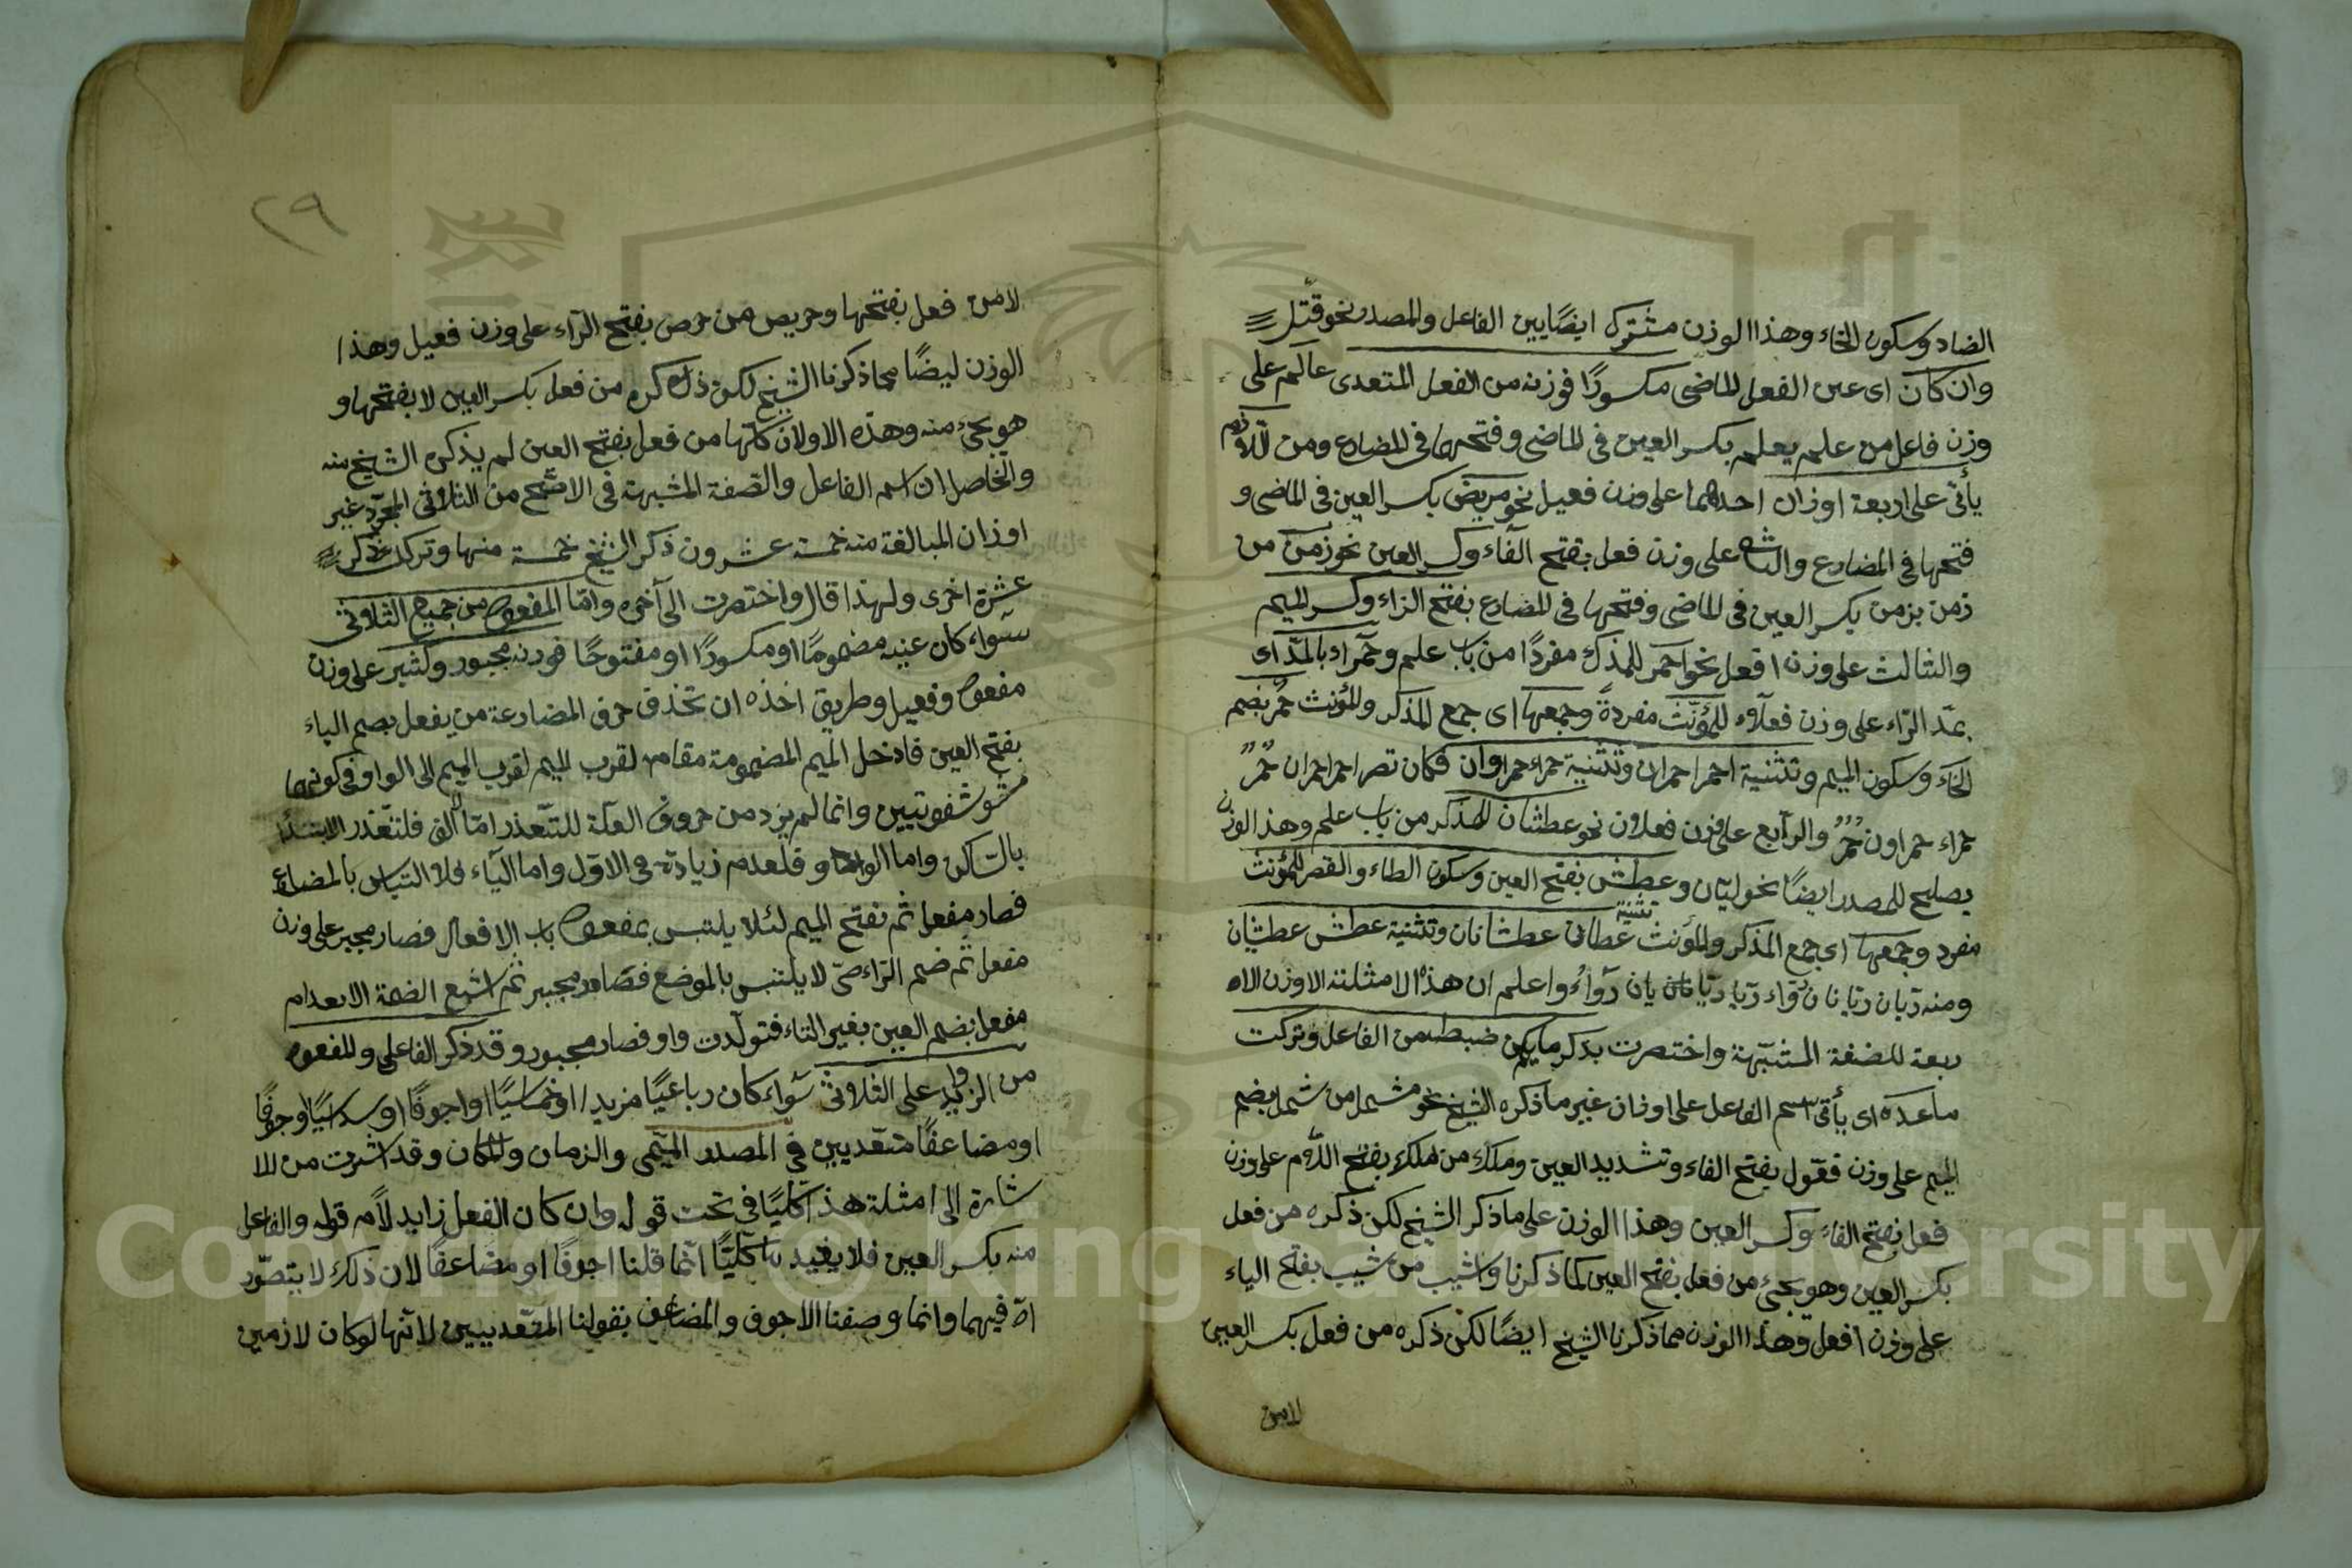 الضاد وسكون الخاء وهذا الوزن مشترك ايضًا بين الفاعل والمصدر نحو قتل
وان كان اى عين الفعل الماضى مكسورًا فوزنه من الفعل المتعدى عالم على
وزن فاعل من علم يعلم بكسر العين فى الماضى وفتحها فى المضارع ومن اللازم
يأتى على اربعة اوزان احدهما على وزن فعيل نحو مريض بكسر العين فى الماضى و
فتحها فى المضارع والثانى على وزن فعل بفتح الفاء وكسر العين نحو زمن من
زمن يزمن بكسر العين فى الماضى وفتحها فى المضارع بفتح الزاء وكسر الميم
والثالث على وزن افعل نحو احمر للمذكر مفردًا من باب علم وحمراء بالمد اى
بمد الراء على وزن فعلاء للمؤنث مفردة وجمعها اى جمع المذكر والمؤنث حمر بضم
الحاء وسكون الميم وتثنية احمر احمران وتثنية حمراء حمراوان فكان تصر احمر احمران حمر
حمراء حمراون حمر والرابع على وزن فعلان نحو عطشان للمذكر من باب علم وهذا الوزن
يصلح للمصدر ايضًا نحو ليان وعطش بفتح العين وسكون الطاء والقصر للمؤنث
مفرد وجمعها اى جمع المذكر والمؤنث عطاش تثنية عطشانان وتثنية عطش عطشيان
ومنه ريان ريانان رواء ريا رييان رواء واعلم ان هذه الامثلة الاوزن الار
بعة للصفة المشبهة واختصرت بذكر ما يمكن ضبطه من الفاعل وتركت
ما عداه اى يأتى اسم الفاعل على اوزان غير ما ذكره الشيخ نحو مشمل من شمل بضم
الميم على وزن فعول بفتح الفاء وتشديد العين وملك من ملك بفتح اللام على وزن
فعل بفتح الفاء وكسر العين وهذا الوزن على ما ذكر الشيخ لكن ذكره من فعل
بكسر العين وهو يجئ من فعل بفتح العين كما ذكرنا واشيب من شيب بفتح الياء
على وزن افعل وهذا الوزن مما ذكرنا الشيخ ايضًا لكن ذكره من فعل بكسر العين
لامن
٢٩
لامن فعل بفتحها وحريص من حرص بفتح الراء على وزن فعيل وهذا
الوزن ايضًا مما ذكرنا الشيخ لكن ذكره من فعل بكسر العين لا بفتحها و
هو يجئ منه وهذه الاوزان كلها من فعل بفتح العين لم يذكره الشيخ منه
والحاصل ان اسم الفاعل والصفة المشبهة فى الاصح من الثلاثى المجرد غير
اوزان المبالغة منه خمسة عشرون ذكر الشيخ خمسة منها وترك ذكر
عشرة اخرى ولهذا قال واختصرت الى آخره واما المفعول من جميع الثلاثى
سواء كان عينه مضمومًا او مكسورًا او مفتوحًا فوزنه مجبور وكثير على وزن
مفعول وفعيل وطريق اخذه ان تحذف حرف المضارعة من يفعل بضم الياء
بفتح العين فادخل الميم المضمومة مقامه لقرب الميم لقرب الميم الى الواو فى كونهما
شفويتين وانما لم يزد من حروف العلة للتعذر اما الف فلتعذر الابتداء
بالساكن واما الواو فلعدم زيادته فى الاول واما الياء فلا التباس بالمضارع
فصار مفعل ثم نفتح الميم لئلا يلتبس بمفعول باب الافعال فصار مجبر على وزن
مفعل ثم ضم الراء حتى لا يلتبس بالموضع فصار مجبر ثم اشبع الضمة الانعدام
مفعل بضم العين بغير التاء فتولدت واو فصار مجبور وقد ذكر الفاعل والمفعول
من الزوايد على الثلاثى سواء كان رباعيًا مزيدا او خماسيًا او اجوفًا او سداسيًا اجوفًا
او مضاعفًا متعديين فى المصدر الميمى والزمان والمكان وقد اشرت من الا
شارة الى امثلة هذا كليًا فى تحت قوله وان كان الفعل زايد لامه قوله والفاعل
منه بكسر العين فلا يفيد كليًا انما قلنا اجوفًا او مضاعفًا لان ذلك لا يتصور
الا فيهما وانما وصفنا الاجوف والمضاعف بقولنا المتعديين لانها لو كان لازمين